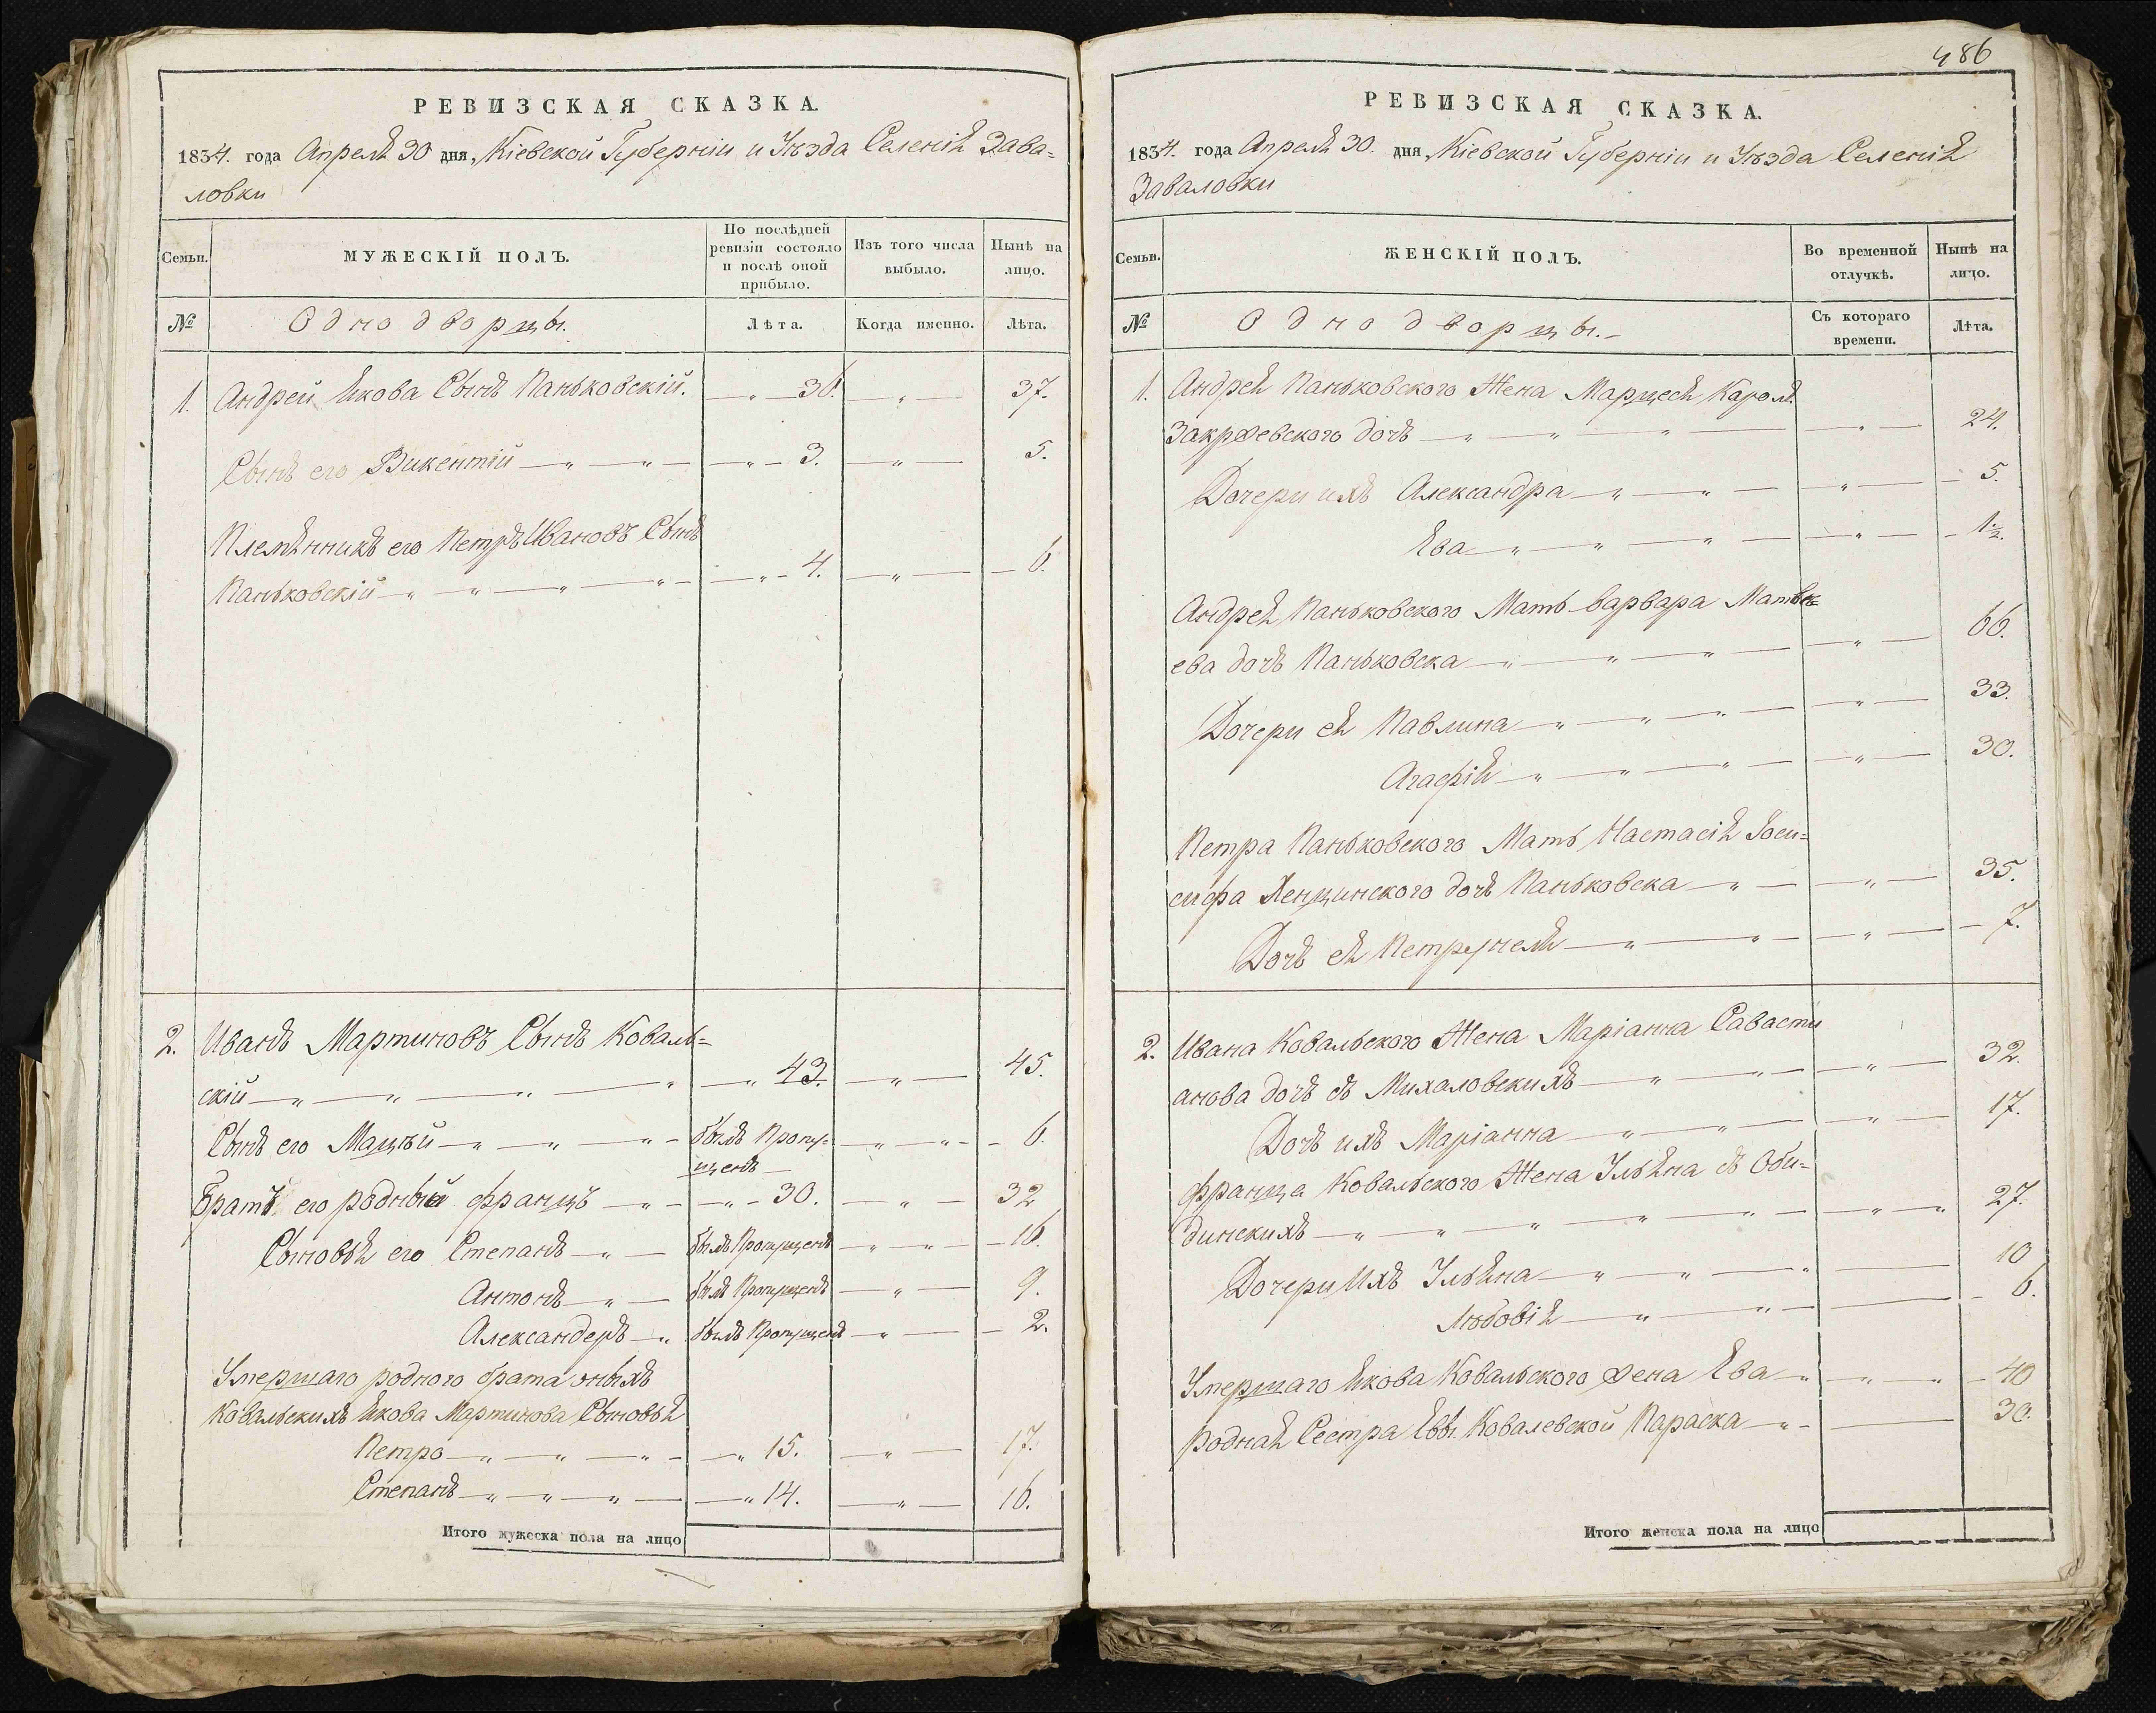 РЕВИЗСКАЯ СКАЗКА.
1834. года Апреля 30 дня, Кіевской Губерніи и Уѣзда Селенія Зава=
ловки
Семьи.
МУЖЕСКІЙ ПОЛЪ.
По послѣдней
ревизіи состояло
и послѣ оной
прибыло.
Изъ того числа
выбыло.
Нынѣ на
лицо.
№
Однодворцы.
Лѣта.
Когда именно.
Лѣта.
1. Андрей Якова Сынъ Паньковскій. — „ — 36. — „ — 37.
Сынъ его Викентій — „ — „ — — „ — 3. — „ — 5.
Племянникъ его Петръ Ивановъ Сынъ
Паньковскій — „ — „ — „ — „ — — „ — 4. — „ — 6.
2. Иванъ Мартиновъ Сынъ Коваль=
скій — „ — „ — „ — „ — „ 43. — „ — 45.
Сынъ его Мацѣй — „ — „ — „ — былъ Пропу=
щенъ — — „ — „ — 6.
Братъ его родный францъ — „ — — „ — 30. — „ — 32
Сыновья его Степанъ — „ — былъ Пропущенъ — „ — „ — 16.
Антонъ — „ — былъ Пропущенъ — „ — 9.
Александеръ — „ былъ Пропущенъ — „ — 2.
Умершаго родного брата оныхъ
Ковальскихъ Якова Мартинова Сыновья
Петро — „ — „ — „ — — „ 15. — „ — 17.
Степанъ — „ — „ — „ — — „ 14. — „ — 16.
Итого мужеска пола на лицо
486
РЕВИЗСКАЯ СКАЗКА.
1834. года Апреля 30. дня, Кіевской Губерніи и Уѣзда Селенія
Заваловки
Семьи.
ЖЕНСКІЙ ПОЛЪ.
Во временной
отлучкѣ.
Нынѣ на
лицо.
№
Однодворцы. —
Съ котораго
времени.
Лѣта.
1. Андрея Паньковского Жена Марцеся Кароля
Закржевского дочь — „ — „ — „ — — „ — 24.
Дочери ихъ Александра — „ — „ — — „ — 5.
Ева — „ — „ — „ — — „ — 1 1/2.
Андрея Паньковского Мать варвара Матвѣ=
ева дочь Паньковска — „ — „ — „ — — „ — 66.
Дочери ея Павлина — „ — „ — „ — — „ — 33.
Агафія — „ — „ — „ — — „ — 30.
Петра Паньковского Мать Настасія Іоси=
сифа дочь Паньковска — „ — — „ — 35.
Дочь ея Петрунеля — „ — „ — — „ — 7.
2. Ивана Ковальского Жена Маріанна Савасти
анова дочь съ Михаловскихъ — „ — „ — — „ — 32.
Дочь ихъ Маріанна — „ — „ — — „ — 17.
франца Ковальского Жена Ульяна съ Оби=
динскихъ — „ — „ — „ — „ — „ — — „ — „ 27.
Дочери Ихъ Ульяна — „ — „ — „ — 10
Любовія — „ — „ — — 6.
Умершаго Якова Ковальского жена Ева — „ — „ — „ — 40
родная Сестра Евы Ковалевской Параска — „ — — 30.
Итого женска пола на лицо